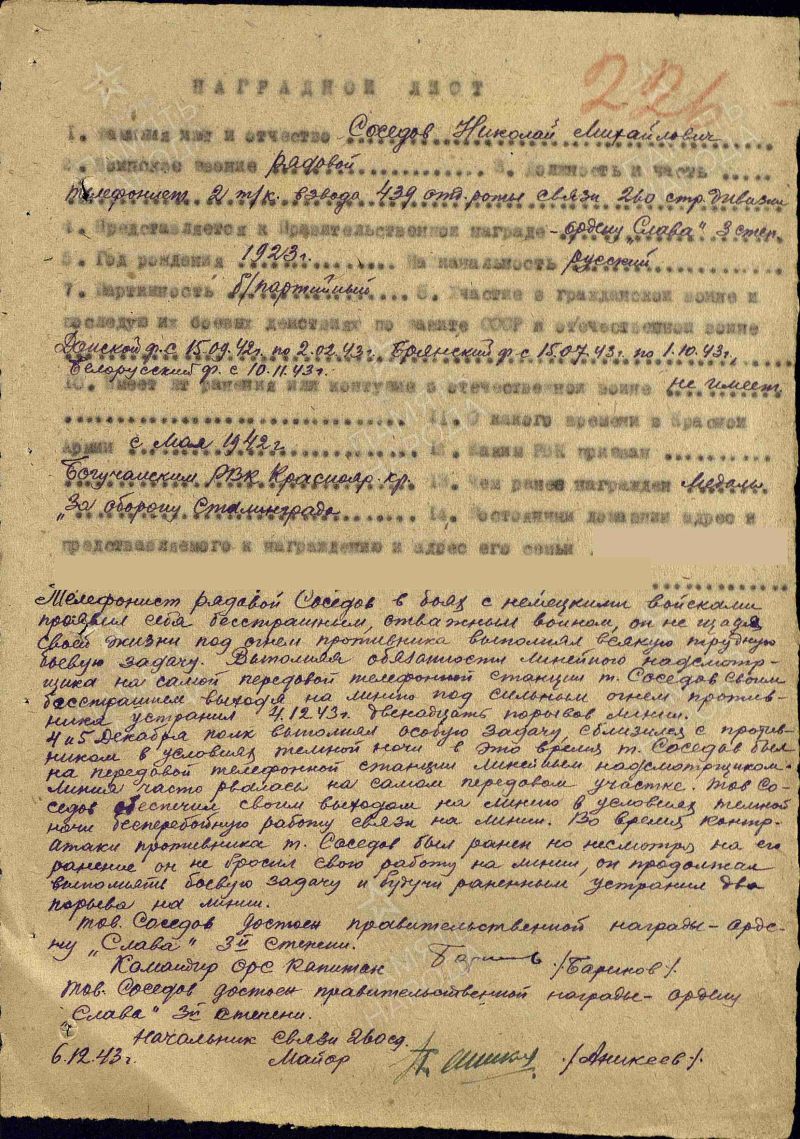 НАГРАДНОЙ ЛИСТ
1. Фамилия имя и отчество Соседов Николай Михайлович
2. Воинское звание рядовой 3. Должность и часть
телефонист 2 т/к. взвода 439 отд. роты связи 260 стр. дивизии
4. Представляется к Правительственной награде - ордену „Слава" 3 степ.
5. Год рождения 1923 г. Национальность русский
7. Партийность б/партийный 8. Участие в гражданской войне и
последующих боевых действиях по защите СССР и отечественной войне
Донской ф. с 15.09.42г. по 2.02.43г., Брянский ф. с 15.07.43г. по 1.10.43г.,
Белорусский ф. с 10.11.43г.
10. Имеет ли ранения или контузии в отечественной войне не имеет
11. С какого времени в Красной
Армии с мая 1942г. 12. Каким РВК призван
Богучанским РВК Краснояр. кр. 13. Чем ранее награжден медаль
„За оборону Сталинграда 14. Постоянный домашний адрес и
представляемого к награждению и адрес его семьи
Телефонист рядовой Соседов в боях с немецкими войсками
проявил себя бесстрашным, отважным воином, он не щадя
своей жизни под огнем противника выполнял всякую трудную
боевую задачу. Выполняя обязанности линейного надсмотр-
щика на самой передовой телефонной станции т. Соседов своим
бесстрашием выходя на линию под сильным огнем против-
ника устранил 4.12.43г. двенадцать порывов линии.
4 и 5 декабря полк выполнял особую задачу, сблизился с против-
ником в условиях темной ночи в это время т. Соседов был
на передовой телефонной станции линейным надсмотрщиком.
Линия часто рвалась на самом передовом участке. Тов Со-
седов обеспечил своим выходом на линию в условиях темной
ночи бесперебойную работу связи на линии. Во время контр-
атаки противника т. Соседов был ранен но несмотря на его
ранение он не бросил свою работу на линии, он продолжал
выполнять боевую задачу и будучи раненным устранил два
порыва на линии.
Тов. Соседов достоен правительственной награды - орде-
ну „Слава" 3й степени.
Командир орс капитан /Баринов/.
Тов. Соседов достоен правительственной награды - ордену
„Слава" 3й степени.
Начальник связи 260сд.
6.12.43г. Майор /Аникеев/.